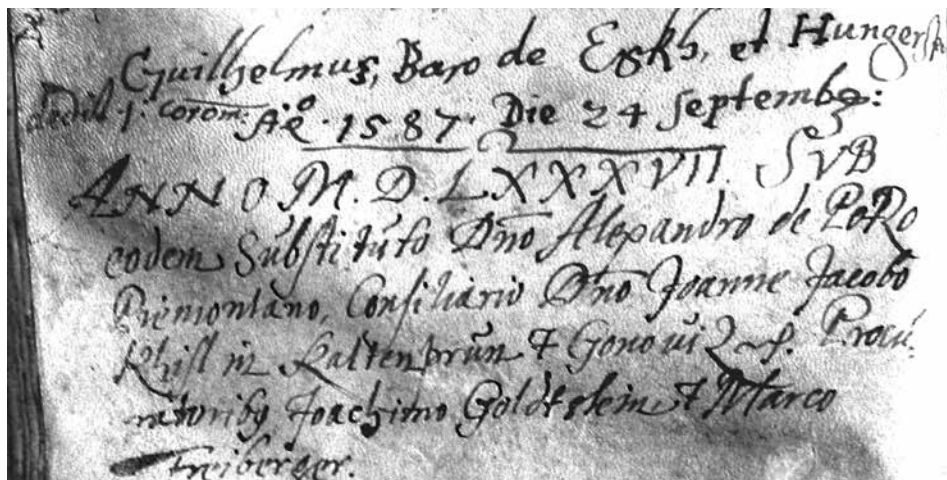 Guilhelmus, Baro de Eckh, et Hungersp
dedit 1. coron. Aō. 1587. Die 24 Septembr:
ANNO M. D. LXXXVII. SVB
eodem Substituto Dno Alexandro de PoRo
Piemontano, Consiliario Dno Joanne Jacobo
Khisl in Kaltenbrun & Gonoviz Procu:
ratoribus Joachimo Goldtstein & Marco
Freiberger.